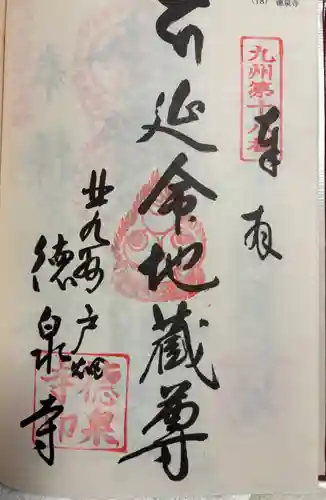 (18) 徳泉寺
九州第十八番
奉拝
延命地蔵尊
北九州戸畑
徳泉寺
徳泉寺印